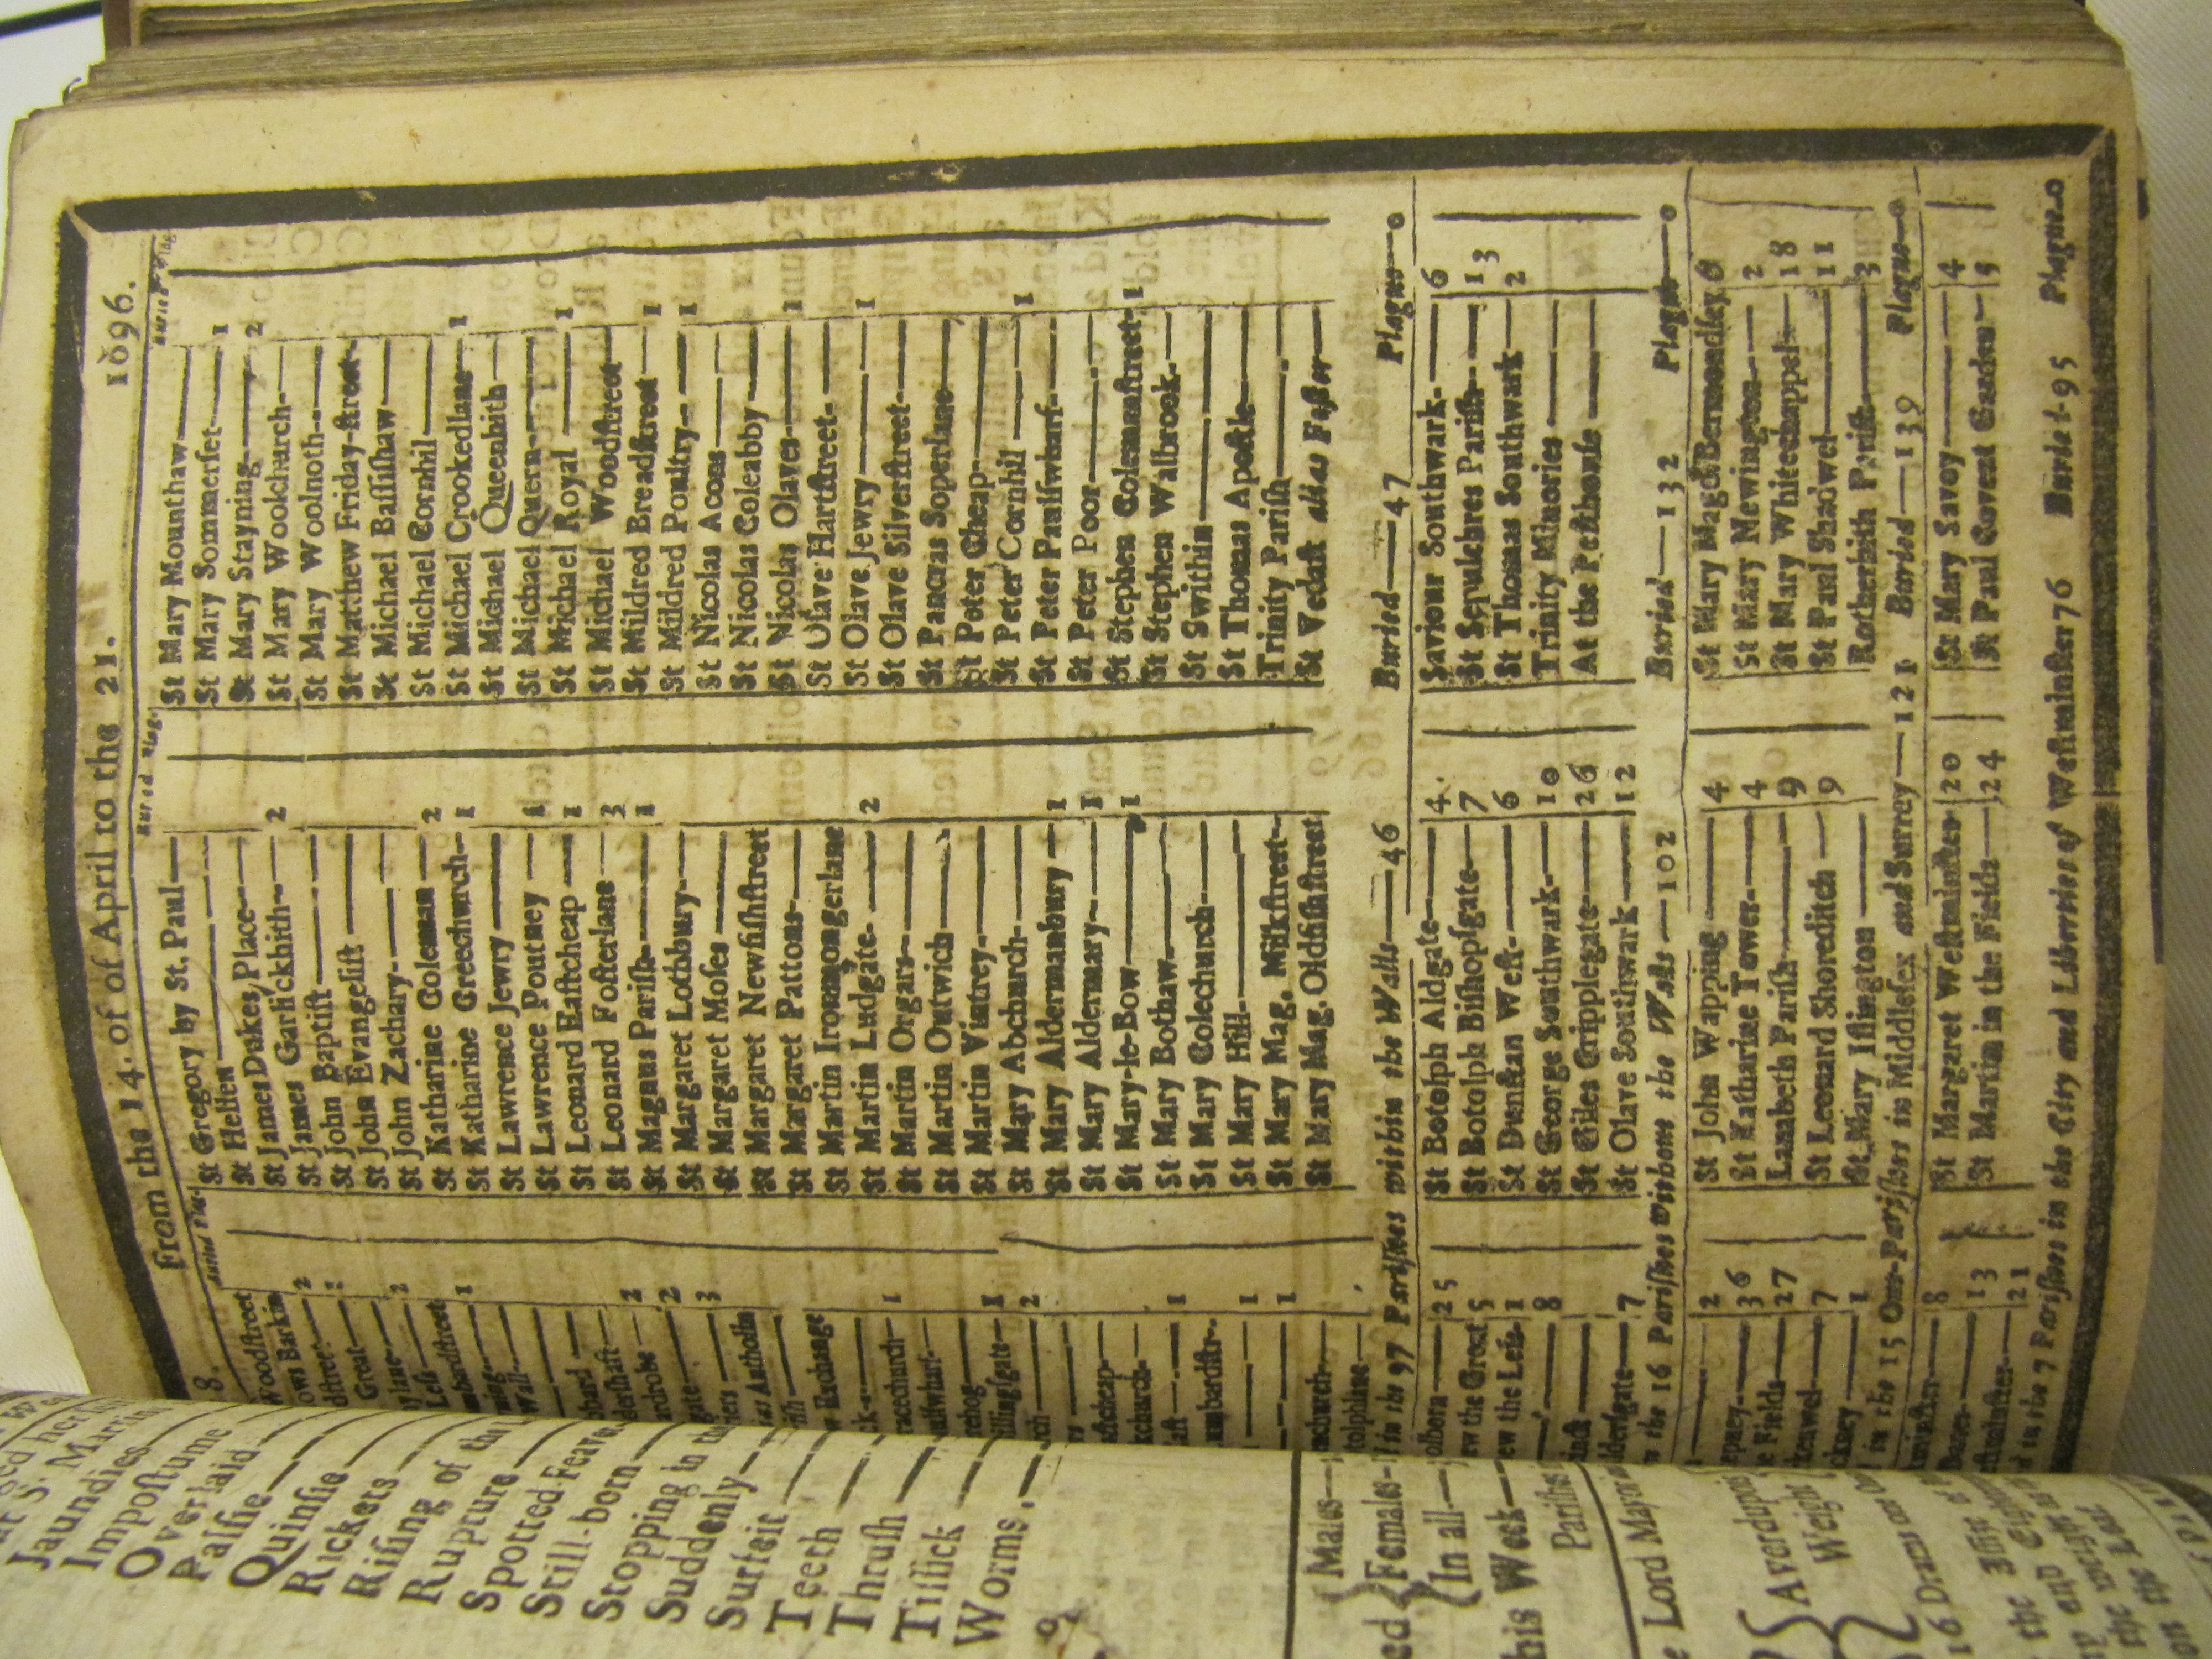 From the 14. of of April to the 21. 1696.
Woodstreet
Great
Less
w Exchange
St Gregory by St. Paul
St Hellen
St James Dukes Place
St James Garlickhith 2
St John Baptist
St John Evangelist
St John Zachary
St Katharine Coleman 2
St Katharine Creechurch 1
St Lawrence Jewry
St Lawrence Poutney 1
St Leonard Eastcheap 1
St Leonard Fosterlane 3
St Magnus Parish 1
St Margaret Lothbury
St Margaret Moses
St Margaret Newfishstreet
St Margaret Pattons
St Martin Ironmongerlane
St Martin Ludgate 2
St Martin Orgars
St Martin Outwich
St Martin Vintrey
St Mary Abchurch
St Mary Aldermanbury 1
St Mary Aldermary 1
St Mary-le-Bow 1
St Mary Bothaw
St Mary Colechurch
St Mary Hill
St Mary Mag. Milkstreet
St Mary Mag. Oldfishstreet
St Mary Mounthaw
St Mary Sommerset 1
St Mary Stayning 2
St Mary Woolchurch
St Mary Woolnoth
St Matthew Friday-street
St Michael Bassishaw
St Michael Cornhil
St Michael Crookedlane 1
St Michael Queenhith
St Michael Quern
St Michael Royal 1
St Michael Woodstreet
St Mildred Breadstreet 1
St Mildred Poultry 1
St Nicolas Acons
St Nicolas Coleabby
St Nicolas Olaves 1
St Olave Hartstreet
St Olave Jewry 1
St Olave Silverstreet
St Pancras Soperlane
St Peter Cheap
St Peter Cornhil 1
St Peter Paulswharf
St Peter Poor
St Stephen Colemanstreet 1
St Stephen Walbrook
St Swithin
St Thomas Apostle
Trinity Parish
St Vedast alias Foster
in the 97 Parishes within the Walls 46 Buried 47 Plague 0
olborn 25
ew the Great 5
ew the Less 1
8
dersgate 7
St Botolph Aldgate 4
St Botolph Bishopsgate 7
St Dunstan West 6
St George Southwark 10
St Giles Cripplegate 26
St Olave Southwark 12
Saviour Southwark 6
St Sepulchres Parish 13
St Thomas Southwark 2
Trinity Minories
At the Pesthouse
the 16 Parishes without the Walls 102 Buried 132 Plague 0
2
epney 36
e Fields 27
kenwel 7
ckney 1
St John Wapping 4
St Katharine Tower 4
Lambeth Parish 9
St Leonard Shoreditch 9
St Mary Islington
St Mary Magd Bermondsey 6
St Mary Newington 2
St Mary Whitechappel 18
St Paul Shadwel 11
Rotherhith Parish 3
in the 15 Out-Parishes in Middlesex and Surrey 121 Buried 139 Plague 0
8
Danes 13
21
St Margaret Westminster 20
St Martin in the Fields 24
St Mary Savoy 4
St Paul Covent Garden 5
in the 7 Parishes in the City and Liberties of Westminster 76 Buried 95 Plague 0
Jaundies
Impostume
Overlaid
Palsie
Quinsie
Rickets
Rising of the
Rupture
Spotted-Feave
Still-born
Stopping in the
Suddenly
Surfeit
Teeth
Thrush
Tissick
Worms
Males
Females
In all
this Week
Parishes
Lord Mayor
Averdupois
Weight
16 Drams